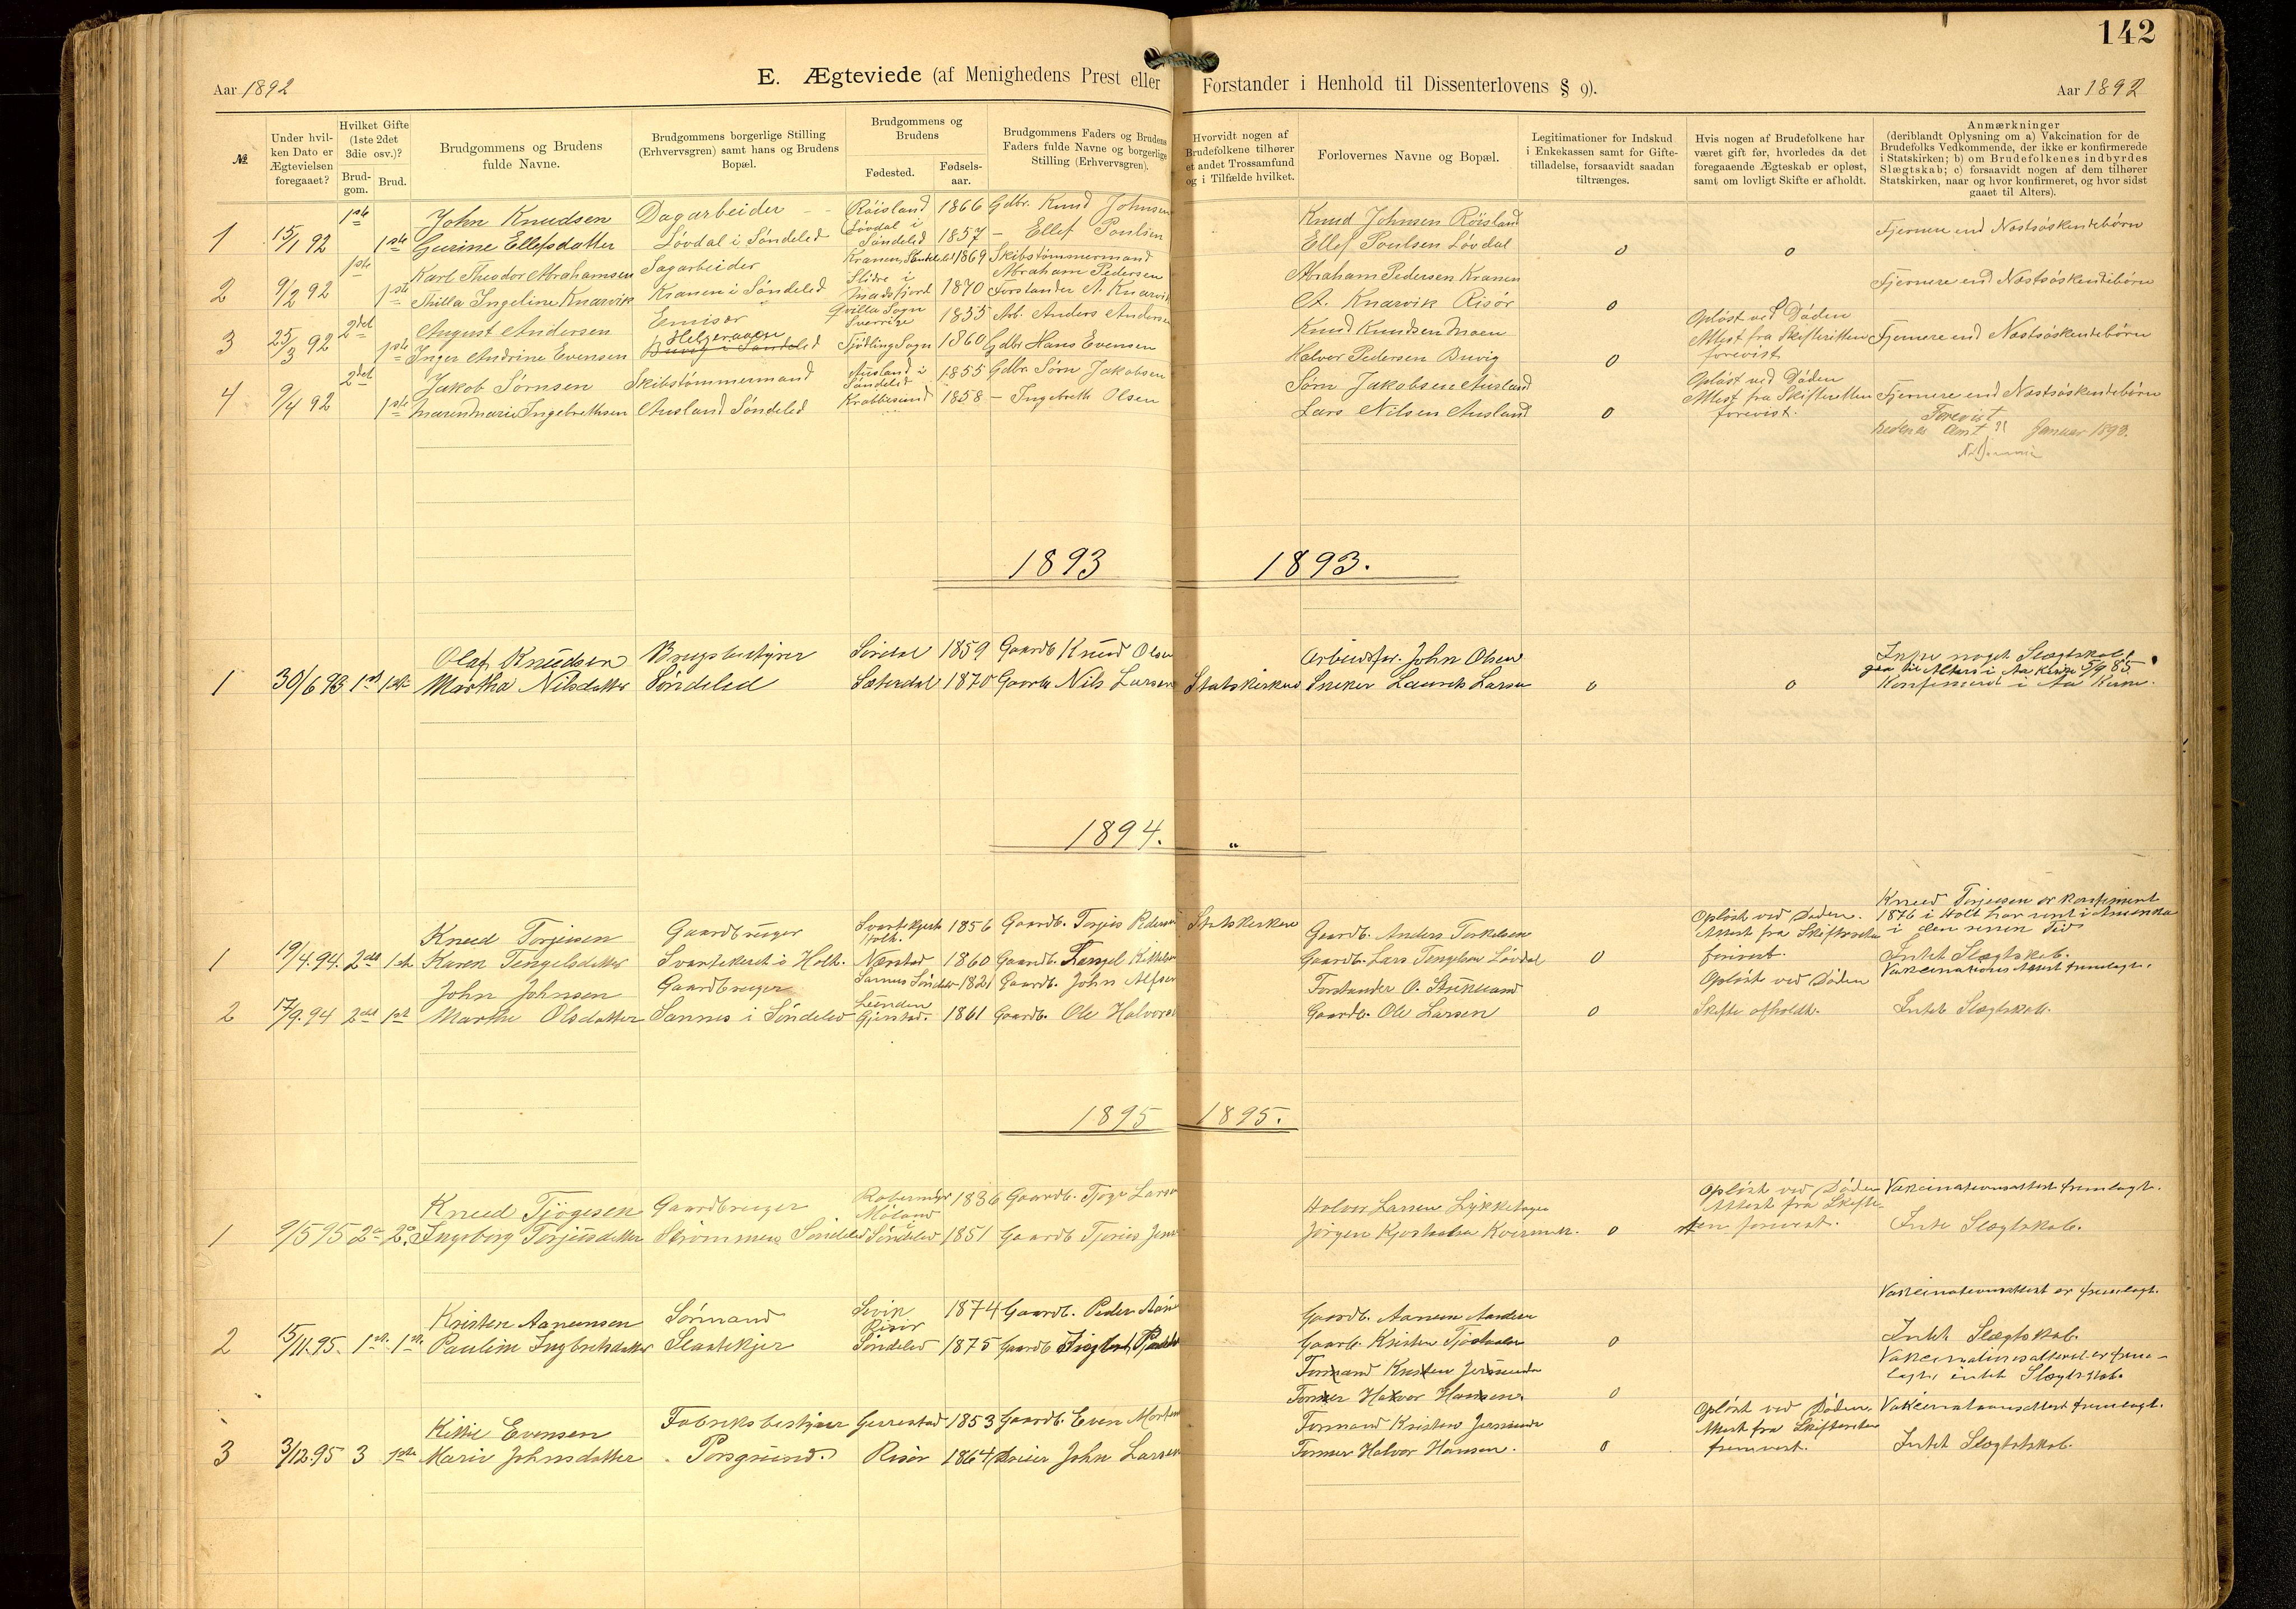 142
Aar 1892
E. Ægteviede (af Menighedens Prest eller Forstander i Henhold til Dissenterlovens § 9).
Aar 1892
№
Under hvilken Dato er Ægtevielsen foregaaet?
Hvilket Gifte (1ste 2det 3die osv.)?
Brudgom.
Brud.
Brudgommens og Brudens fulde Navne.
Brudgommens borgerlige Stilling (Erhvervsgren) samt hans og Brudens Bopæl.
Brudgommens og Brudens
Fødested.
Fødselsaar.
Brudgommens Faders og Brudens Faders fulde Navne og borgerlige Stilling (Erhvervsgren).
Hvorvidt nogen af Brudefolkene tilhører et andet Trossamfund og i Tilfælde hvilket.
Forlovernes Navne og Bopæl.
Legitimationer for Indskud i Enkekassen samt for Giftetilladelse, forsaavidt saadan tiltrænges.
Hvis nogen af Brudefolkene har været gift før, hvorledes da det foregaaende Ægteskab er opløst, samt om lovligt Skifte er afholdt.
Anmærkninger
(deriblandt Oplysning om a) Vakcination for de Brudefolks Vedkommende, der ikke er konfirmerede i Statskirken; b) om Brudefolkenes indbyrdes Slægtskab; c) forsaavidt nogen af dem tilhører Statskirken, naar og hvor konfirmeret, og hvor sidst gaaet til Alters).
1ste John Knudsen Dagarbeider Röisland 1866 Gdbr. Knud Johnsen Knud Johnsen Röisland
1 15/1 92 1ste Gurine Ellefsdatter Løvdal i Søndeled Løvdal i Søndeled 1857 – Ellef Poulsen Ellef Poulsen Løvdal 0 0 Fjernere end Næstsøskendebørn
1ste Karl Theodor Abrahamsen Sagarbeider Kranen, Søndeled 1869 Skibstømmermand Abraham Pedersen Abraham Pedersen Kranen
2 9/2 92 1ste Thilla Ingeline Knarvik Kranen i Søndeled Slidre i 1870 Forstander A. Knarvik A. Knarvik Risør 0 0 Fjernere end Næstsøskendebørn
2det August Andersen Emisør Sogn Sverrige 1855 Arb. Anders Andersen Knud Knudsen Moen Opløst ved Døden
3 25/3 92 1ste Inger Andrine Evensen Helgeraaen Buvig i Søndeled Tjødling Sogn 1860 Gdbr Hans Evensen Halvor Pedersen Buvig 0 Attest fra Skifteretten forevist Fjernere end Næstsøskendebørn
2det Jakob Sørnsen Skibstømmermand Ausland i Søndeled 1855 Gdbr. Sørn Jakobsen Sørn Jakobsen Ausland Opløst ved Døden
4 9/4 92 1ste Maren Marie Ingebrethsen Ausland Søndeled Krabbesund 1858 – Ingebreth Olsen Lars Nilsen Ausland 0 Attest fra Skifteretten forevist. Fjernere end Næstsøskendebørn
Forevist
Nedenes Amt Januar 1893.
1893 1893.
Olaf Knudsen Brugsbestyrer 1859 Gaardb Knud Olsen John Olsen
1 30/6 93 1st 1ste Martha Nilsdatter Søndeled Sæterdal 1870 Gaardb Nils Larsen Statskirken Sneker Larsen 0 0 Ikke noget Slægtskab
gaa til Alters i Aa Kirke 5/9 85
Konfirmeret i Aa Kirke.
1894. "
Knud Torjusen Gaardbruger Svartekjest Holt. 1856 Gaardb. Torjus Pedersen Statskirken Gaardb. Anders Terkelsen Opløst ved Døden. Knud Torjusen er konfirmert 1876 i Holt har vært i Amerika i den senere Tid
1 19/4.94. 2det 1ste Karen Tengelsdatter Svartekjest i Holt. Nærstad 1860 Gaardb. Tengel Gaardb. Lars Tengelsen Løvdal 0 Attest fra Skifteretten forevist. Intet Slægtskab.
John Johnsen Gaardbruger Sannes Søndeled 1821 Gaardb. John Alfsen Forstander O. Opløst ved Døden Vakcinations Attest fremlagt.
2 17/9.94 2det 1ste Marthe Olsdatter Sannes i Søndeled Lunden Gjerstad. 1861 Gaardb. Ole Halvors Gaardb. Ole Larsen 0 Skifte afholdt. Intet Slægtskab.
1895 1895.
Knud Tjøgesen Gaardbruger 1836 Gaardb. Larsen Halvor Larsen Opløst ved Døden Vakcinationsattest fremlagt.
1 9/5 95 2de 2de Ingeborg Torjusdatter Strømmen Søndeled Søndeled 1851 Gaardb Jørgen 0 Attest fra Skifteretten forevist. Intet Slægtskab.
Vakcinationsattest er fremlagt.
Kristen Aanensen Sømand Sivik Risør 1874 Gaardb. Peder Gaardb. Aanen
2 15/11.95. 1ste 1ste Pauline Ingbretsdatter Slaatekjer Søndeled 1875 Gaardb Gaardb. Kristen 0 Intet Slægtskab.
Formand Kristen Vakcinationsattest er fremlagt, intet Slægtskab.
Former Halvor Hansen 0
Kittil Evensen Fabriksbestyrer Gjerrestad 1853 Gaardb. Even Formand Kristen Opløst ved Døden. Vakcinationsattest fremlagt.
3 3/12.95 3 1ste Marie Johnsdatter Porsgrund. Risør 1864 John Larsen Former Halvor Hansen. 0 Attest fra Skifteretten fremvist. Intet Slægtskab.